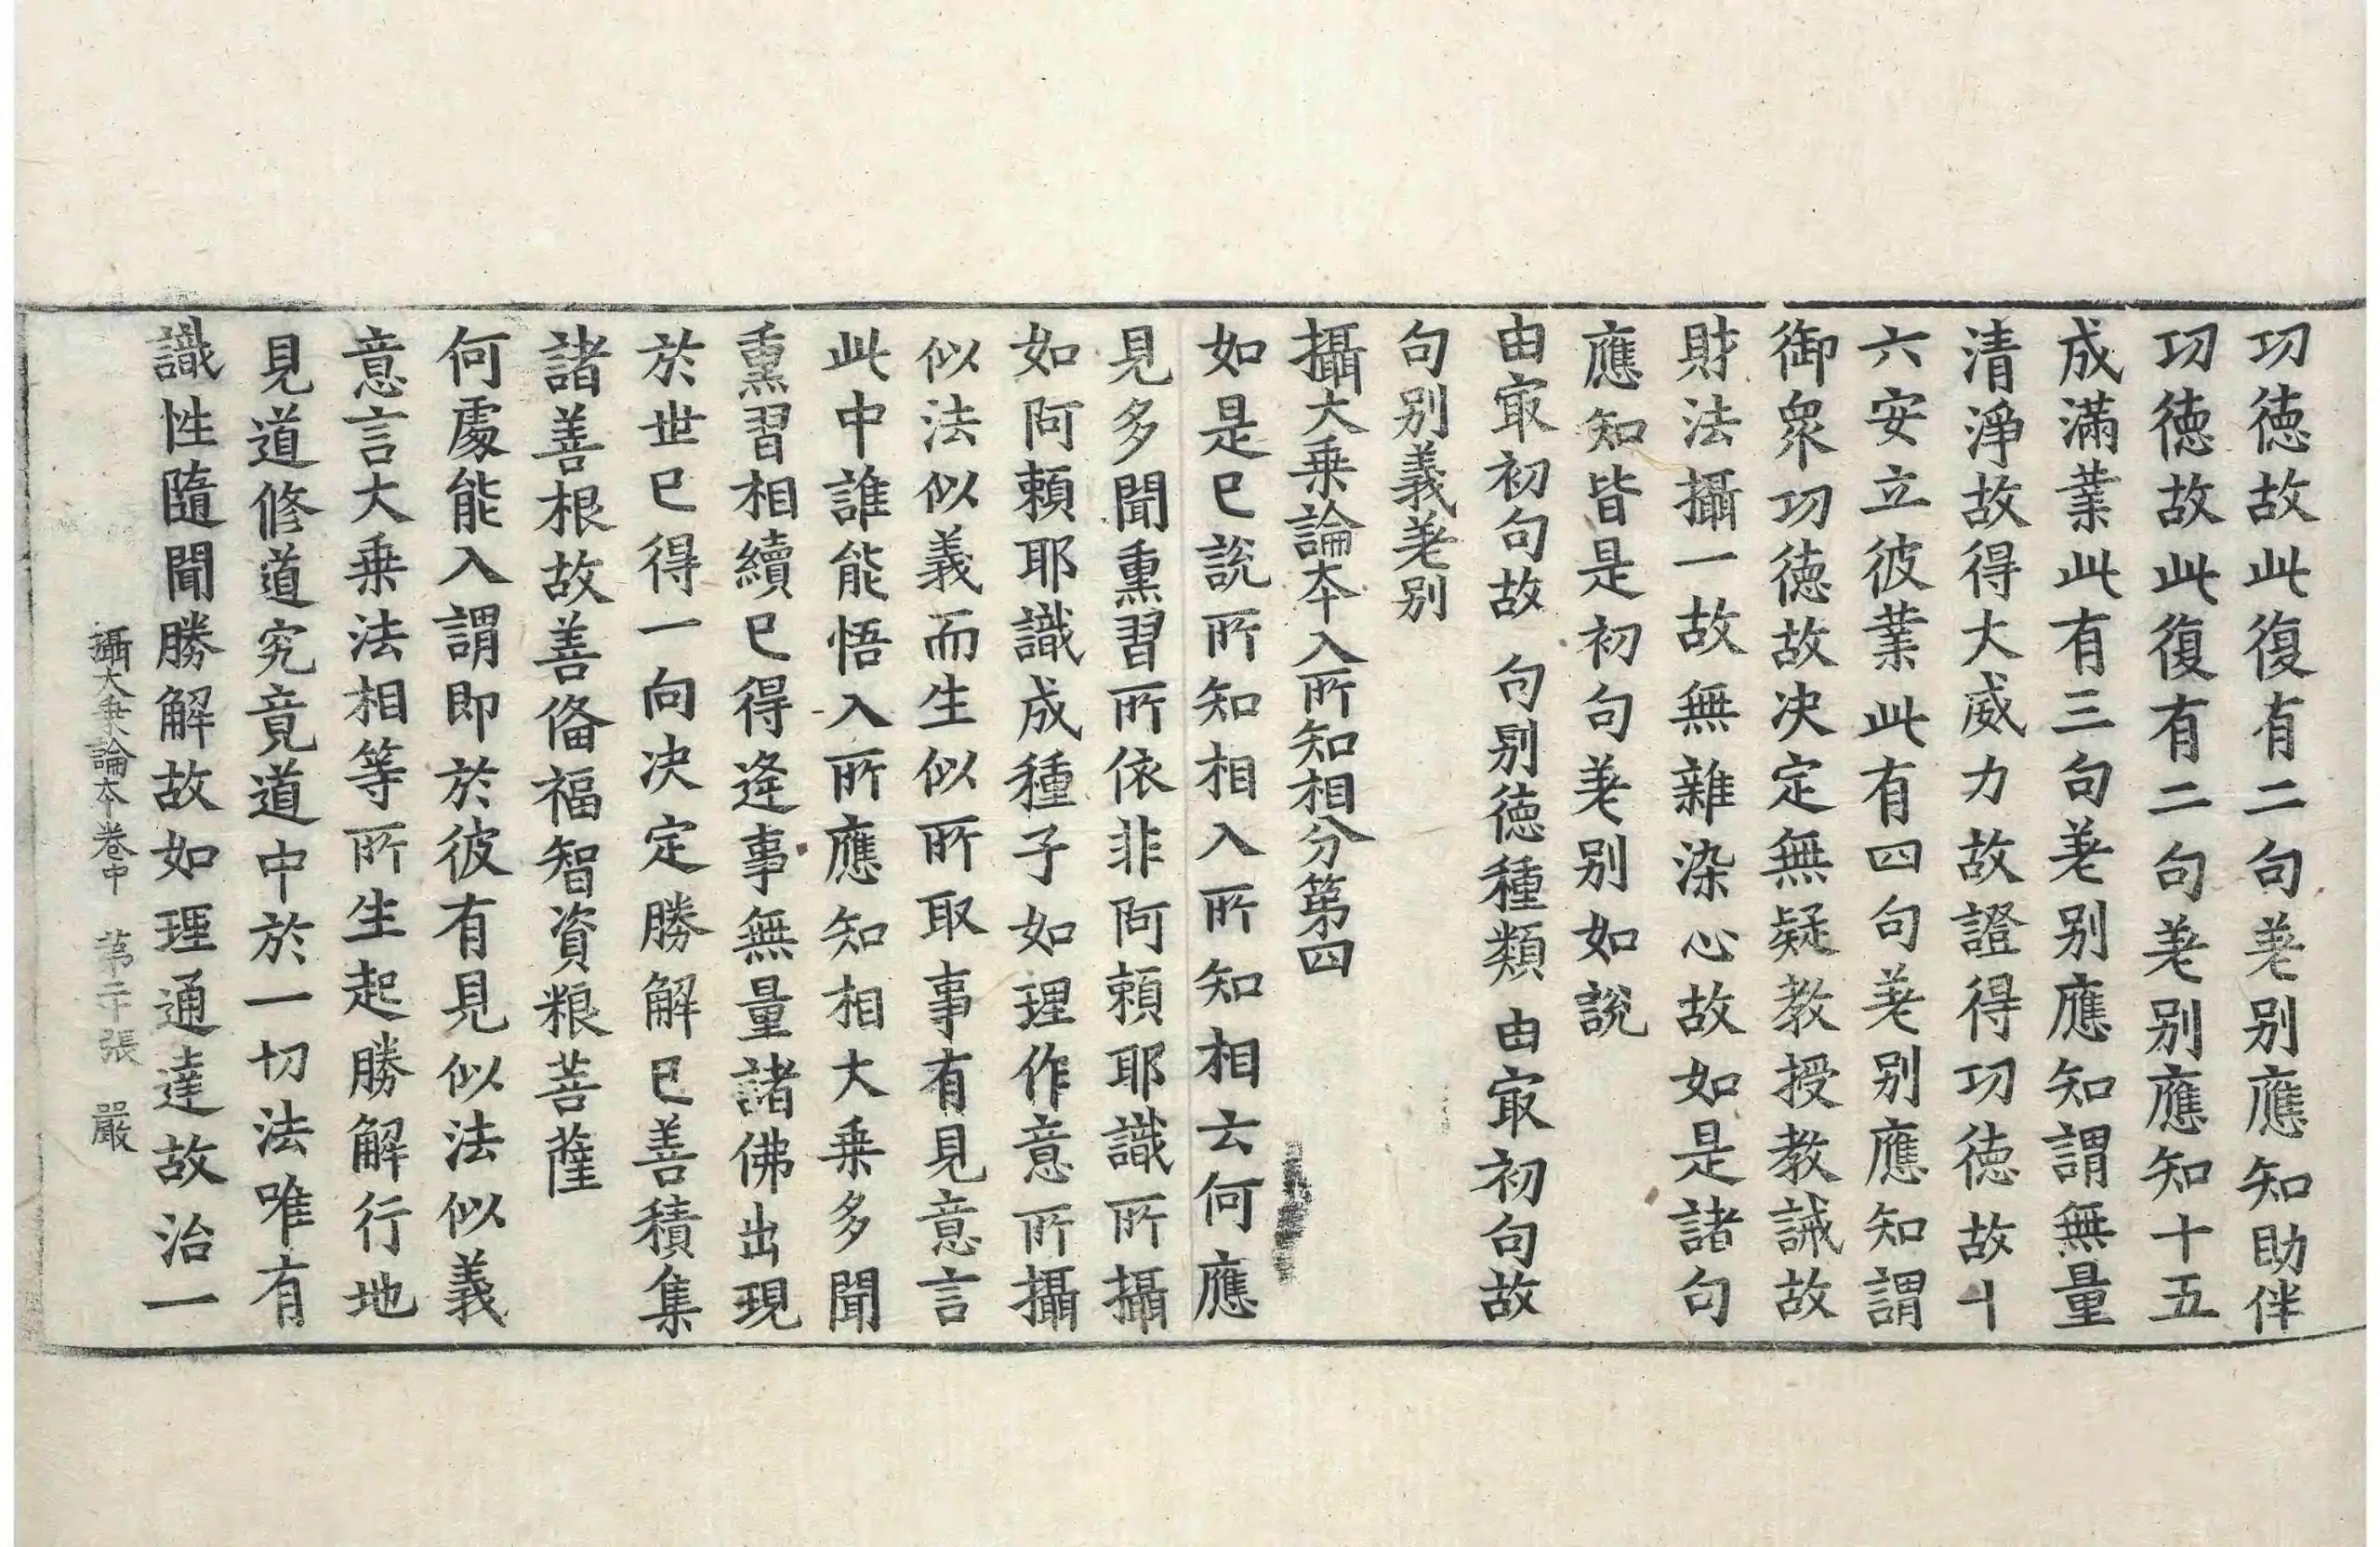 功徳故此復有二句差别應知助伴
功徳故此復有二句差别應知十五
成滿業此有三句差别應知謂無量
清淨故得大威力故證得功徳故十
六安立彼業此有四句差别應知謂
御衆功徳故决定無疑教授教誡故
財法攝一故無雜染心故如是諸句
應知皆是初句差别如說
由㝡初句故 句别徳種類 由㝡初句故
句别義差别
攝大乗論本入所知相分第四
如是已說所知相入所知相云何應
見多聞熏習所依非阿頼耶識所攝
如阿頼耶識成種子如理作意所攝
似法似義而生似所取事有見意言
此中誰能悟入所應知相大乗多聞
熏習相續已得逄事無量諸佛出現
於世已得一向决定勝解已善積集
諸善根故善俻福智資粮菩薩
何處能入謂即於彼有見似法似義
意言大乗法相等所生起勝解行地
見道修道究竟道中於一切法唯有
識性隨聞勝解故如理通達故治一
攝大乗論本卷中 第二十張 嚴